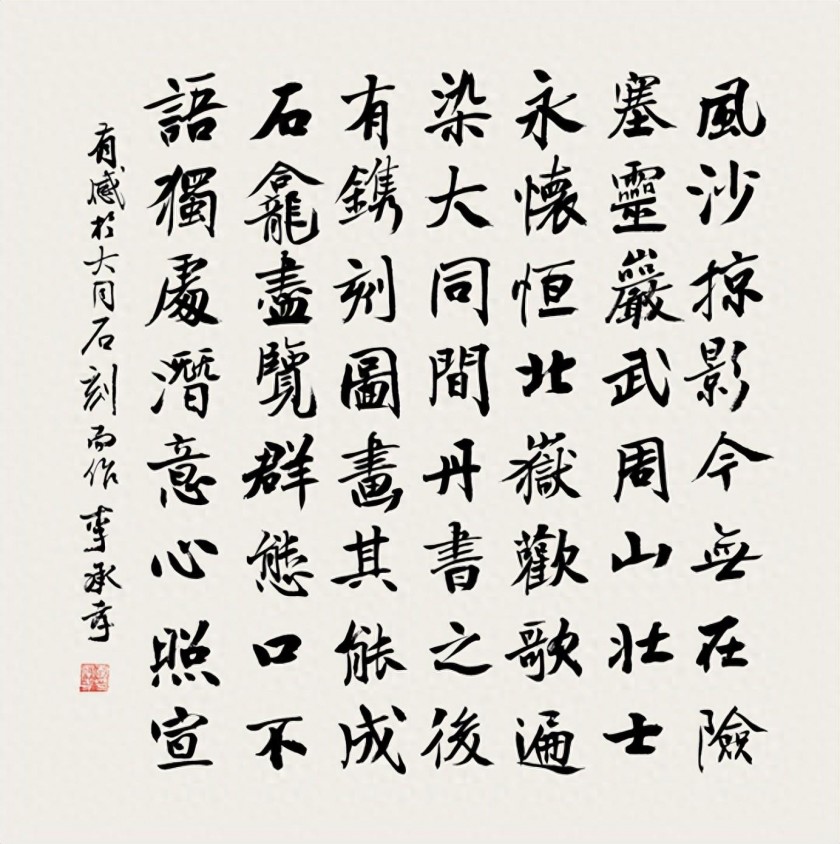 風沙掠影今無在險
塞靈巖武周山壯士
永懷恒北嶽歡歌遍
染大同間丹書之後
有鐫刻圖畫其能成
石龕盡覽群態口不
語獨處潛意心照宣
有感於大同石刻而作 李承幸